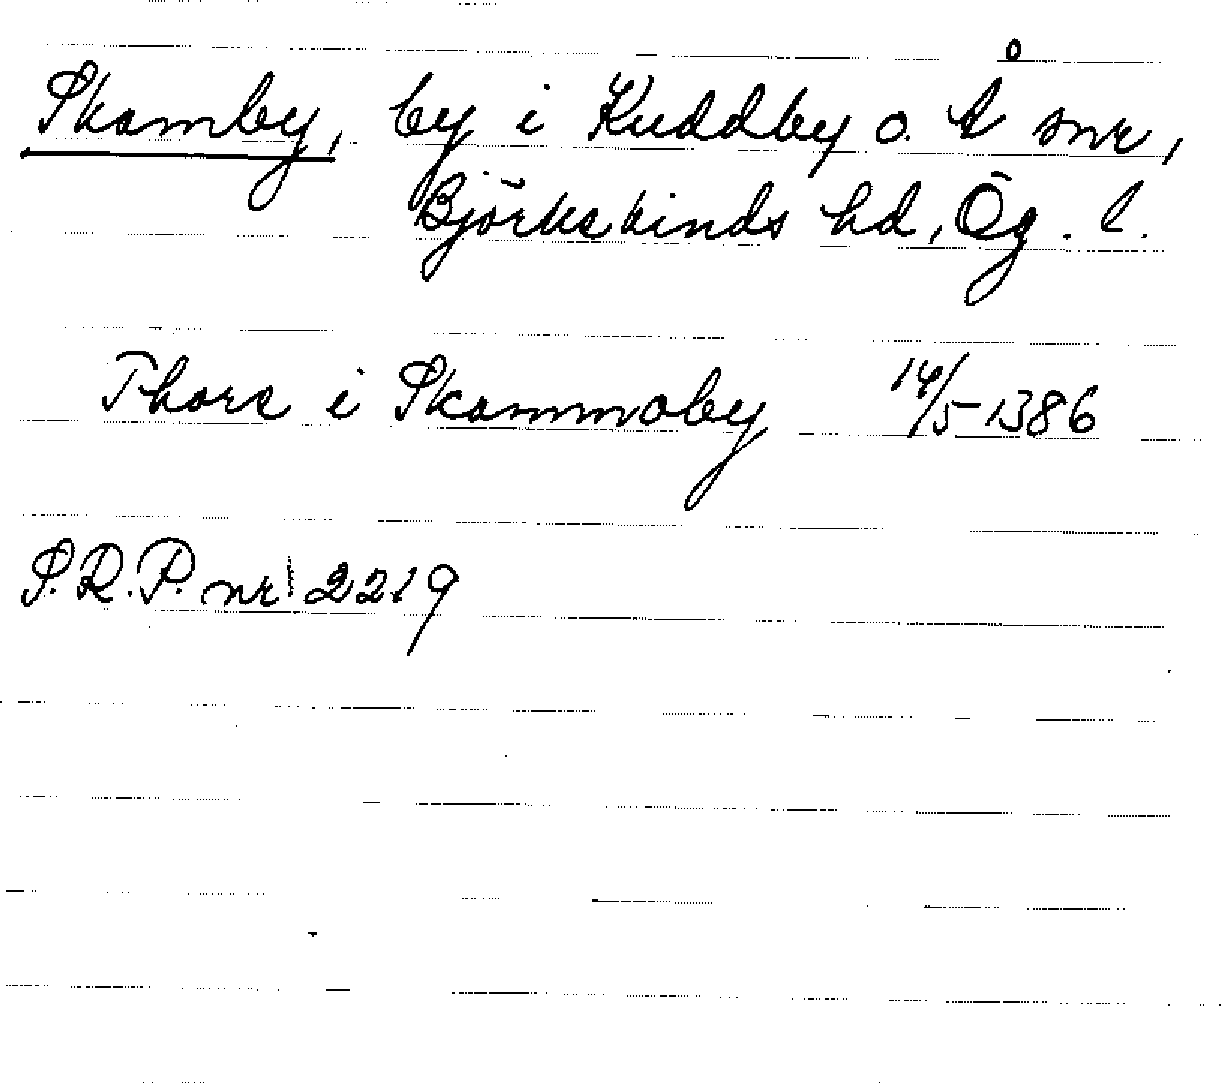 Skamby, by i Kuddby o. Å snr,
Björkekinds hd, Ög. l.
Thore i Skammaby 14/5-1386
S.R.P. nr 2219